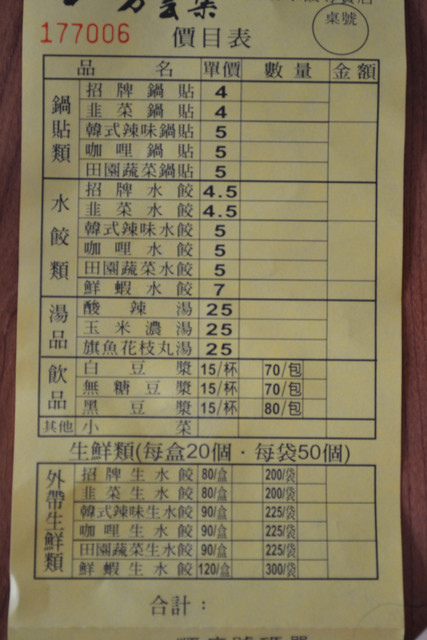 177006
價目表
桌號
品名 單價 數量 金額
鍋貼類
招牌鍋貼 4
韭菜鍋貼 4
韓式辣味鍋貼 5
咖哩鍋貼 5
田園蔬菜鍋貼 5
水餃類
招牌水餃 4.5
韭菜水餃 4.5
韓式辣味水餃 5
咖哩水餃 5
田園蔬菜水餃 5
鮮蝦水餃 7
湯品
酸辣湯 25
玉米濃湯 25
旗魚花枝丸湯 25
飲品
白豆漿 15/杯 70/包
無糖豆漿 15/杯 70/包
黑豆漿 15/杯 80/包
其他 小菜
生鮮類(每盒20個．每袋50個)
外帶生鮮類
招牌生水餃 80/盒 200/袋
韭菜生水餃 80/盒 200/袋
韓式辣味生水餃 90/盒 225/袋
咖哩生水餃 90/盒 225/袋
田園蔬菜生水餃 90/盒 225/袋
鮮蝦生水餃 120/盒 300/袋
合計：